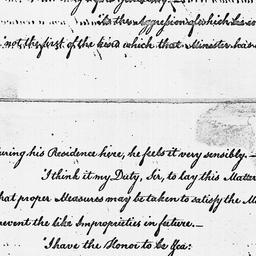 its the Aggression of which he
is not the first of the kind which that Minister has
uring his Residence here, he feels it very sensibly. —
I think it my Duty, Sir, to lay this Matter
hat proper Measures may be taken to satisfy the M
revent the like Improprieties in future. —
I have the Honor to be &ca: